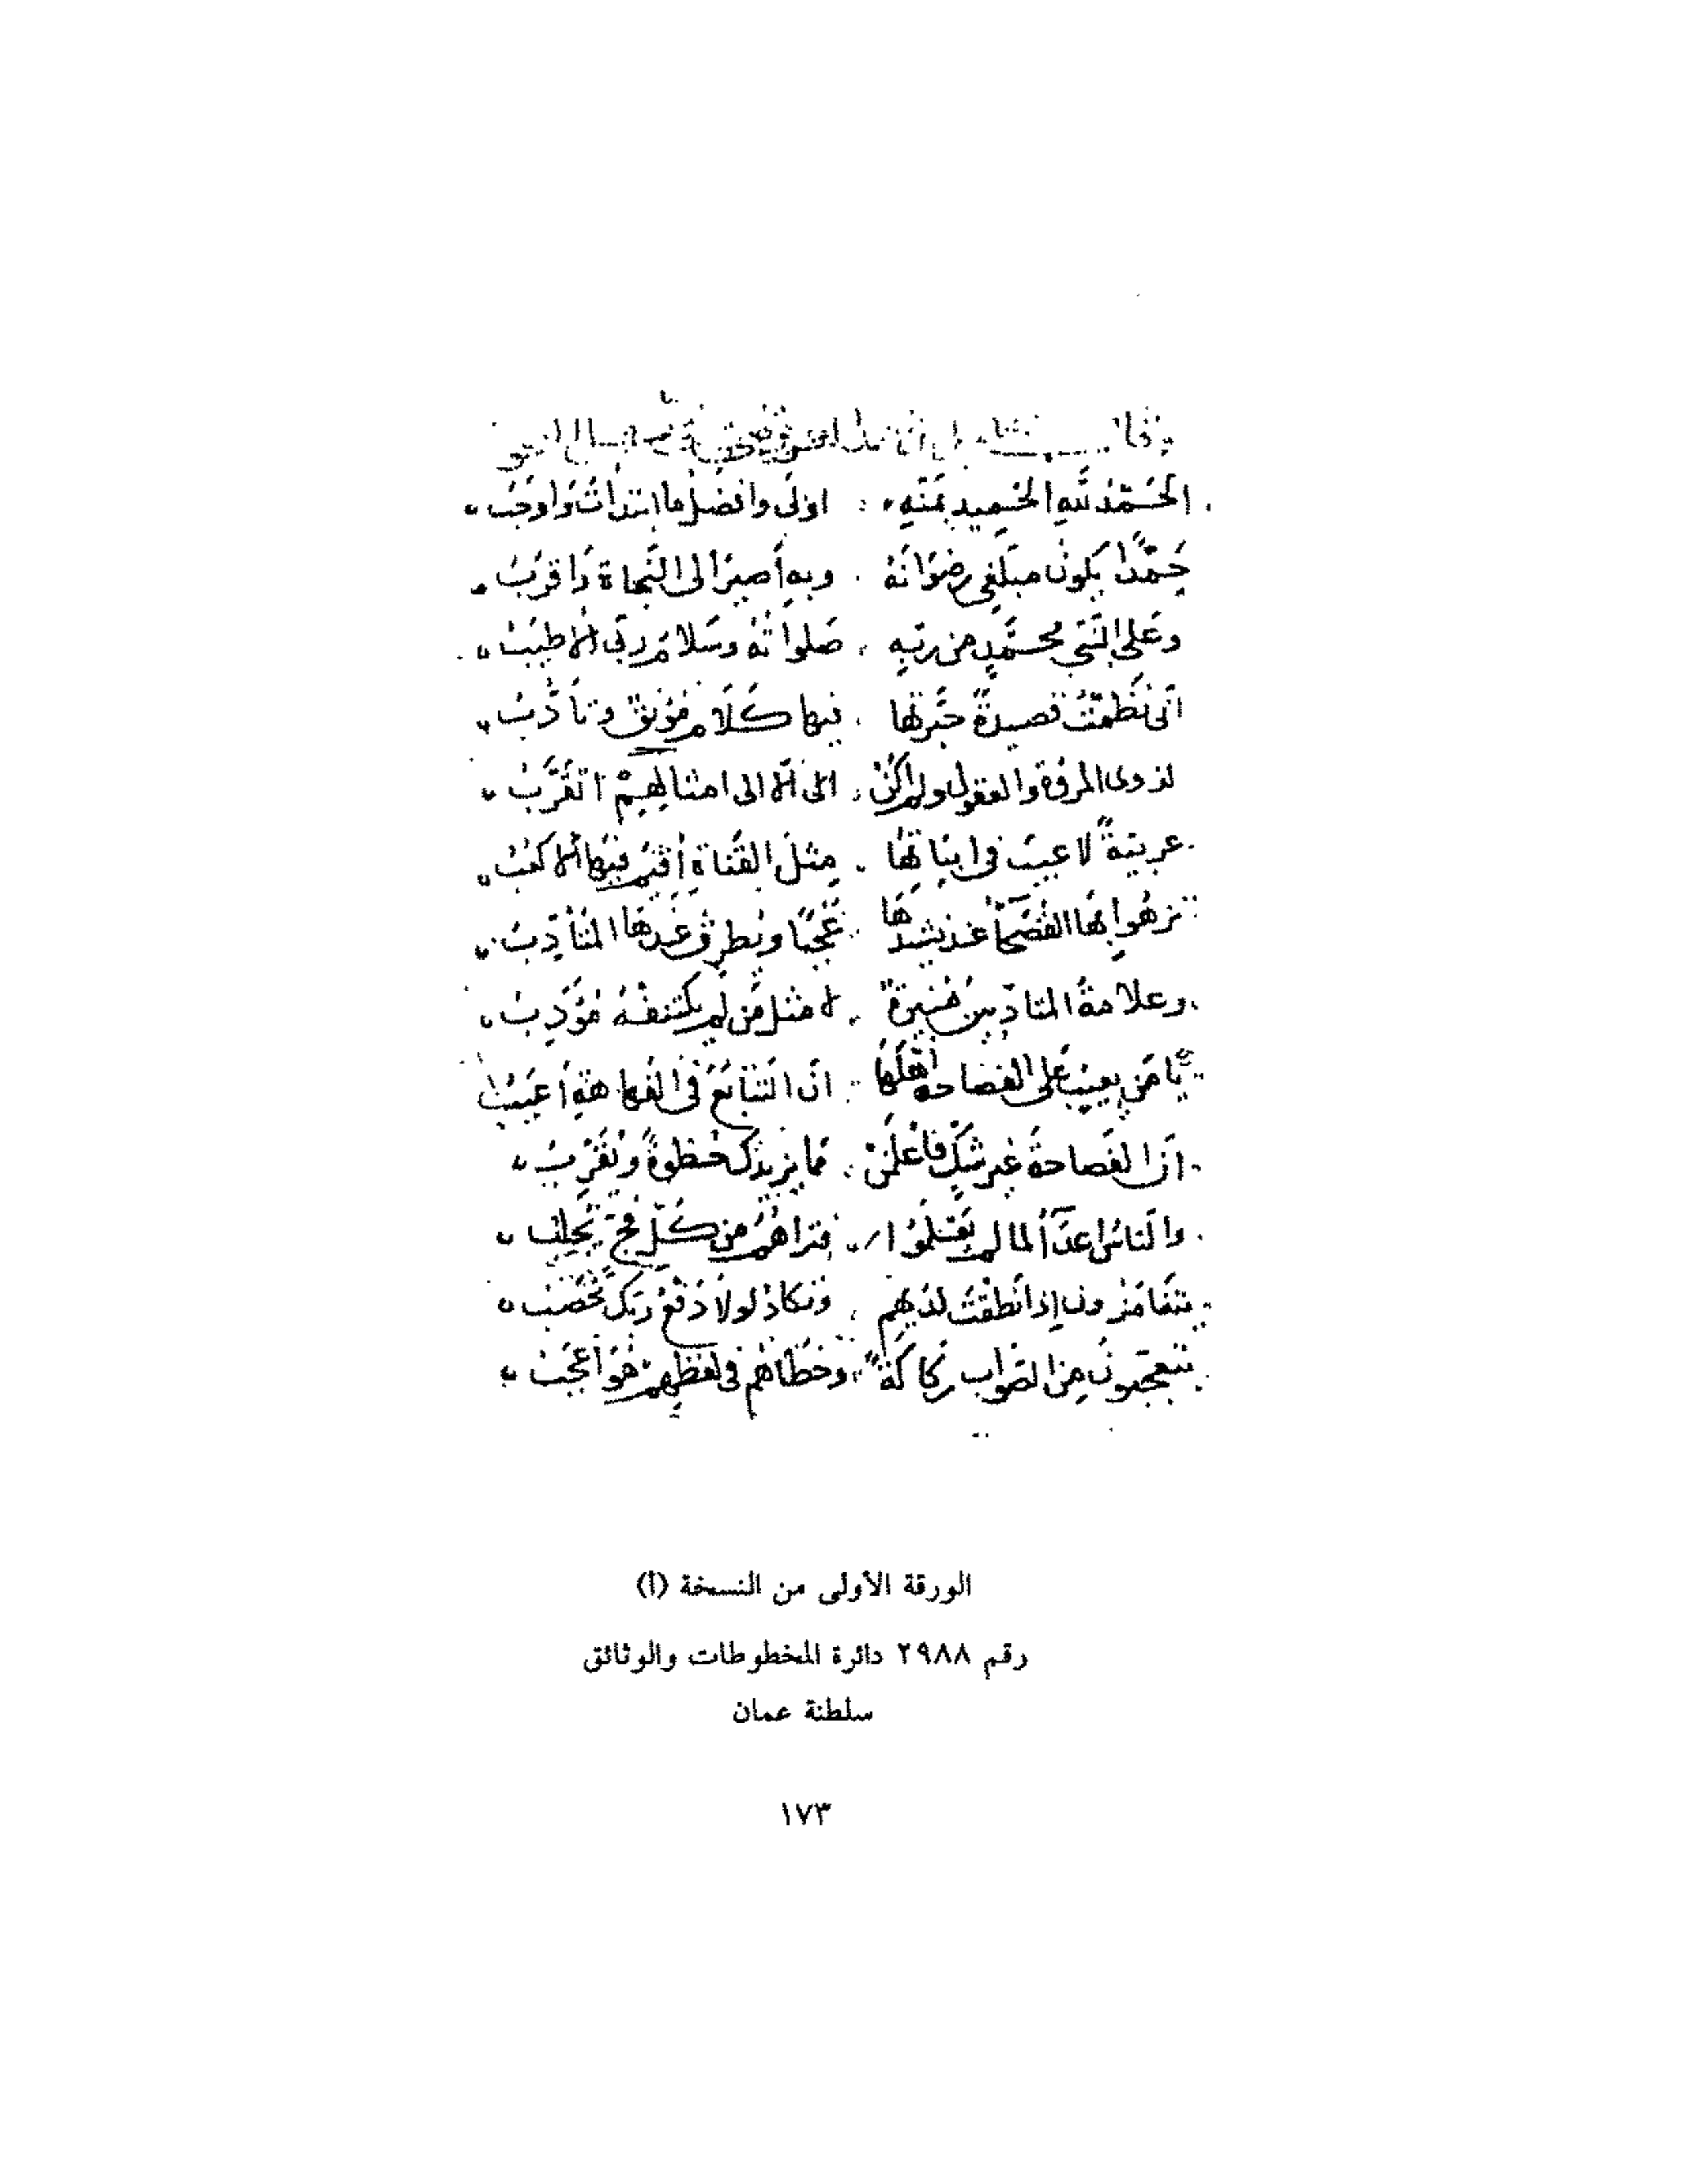 الحَمْدُ للَّهِ الحَمِيدِ بمَنّهِ اوْلَى وافضَلُ ما ابتدَأتُ وَاوْجَبُ
حَمْدًا يكونُ مبلّغِى رضوَانَهُ وبهِ أَصِيرُ الى النَّجاةِ وَاقرَبُ
وعَلى النَّبيِّ محمَّدٍ من ربّهِ صَلواتُهُ وسَلامُ ربّى الاطيَبُ
انّى نَظمْتُ قصيدةً حَبّرتها فيها كَلَام مُوْنِقٌ وتأدُّبُ
لذوى المروْةِ والعقول ولم أكُنْ الّا الى امثالِهِمْ اتَقَرَّبُ
عربيّةً لا عيبَ فى ابيَاتها مِثلَ القَناةِ أقيمَ فيهَا الاكعُبُ
تزهُوا بهَا الفُصَحَآءُ عندَ نشيدهَا عُجْبًا ويُطرقُ عندَهَا المُتأَدِّبُ
وعلامةُ المتادّبينَ مُنيرَةٌ لا مثلُ مَن لَم يَكْتنفْهُ مُؤَدِّبُ
يَا مَن يعِيبُ على الفصاحةِ أهْلَهَا انّ التتَابُعَ فى الفهاهَةِ أَعْيَبُ
انّ الفَصاحةَ غير شكٍّ فاعْلَمَنْ مما يزيدُكَ حُظوةً ويُقَرِّبُ
والنّاسُ اعدَآءٌ لما لم يَعْلمُوا فتراهُمُ من كُلّ فجٍّ يُجلِبُ
يتَغامَزُونَ إذا نَطَقْتَ لدَيهِم وتكادُ لولا دَفْعُ ربّكَ تُحْصَبُ
يتعجّبونَ مِنَ الصَّوابِ رَكاكَةً وخطَاهُم فى لفظِهِمْ هُوَ اعْجَبُ
الورقة الأولى من النسخة (أ)
رقم ٢٩٨٨ دائرة المخطوطات والوثائق
سلطنة عمان
١٧٣